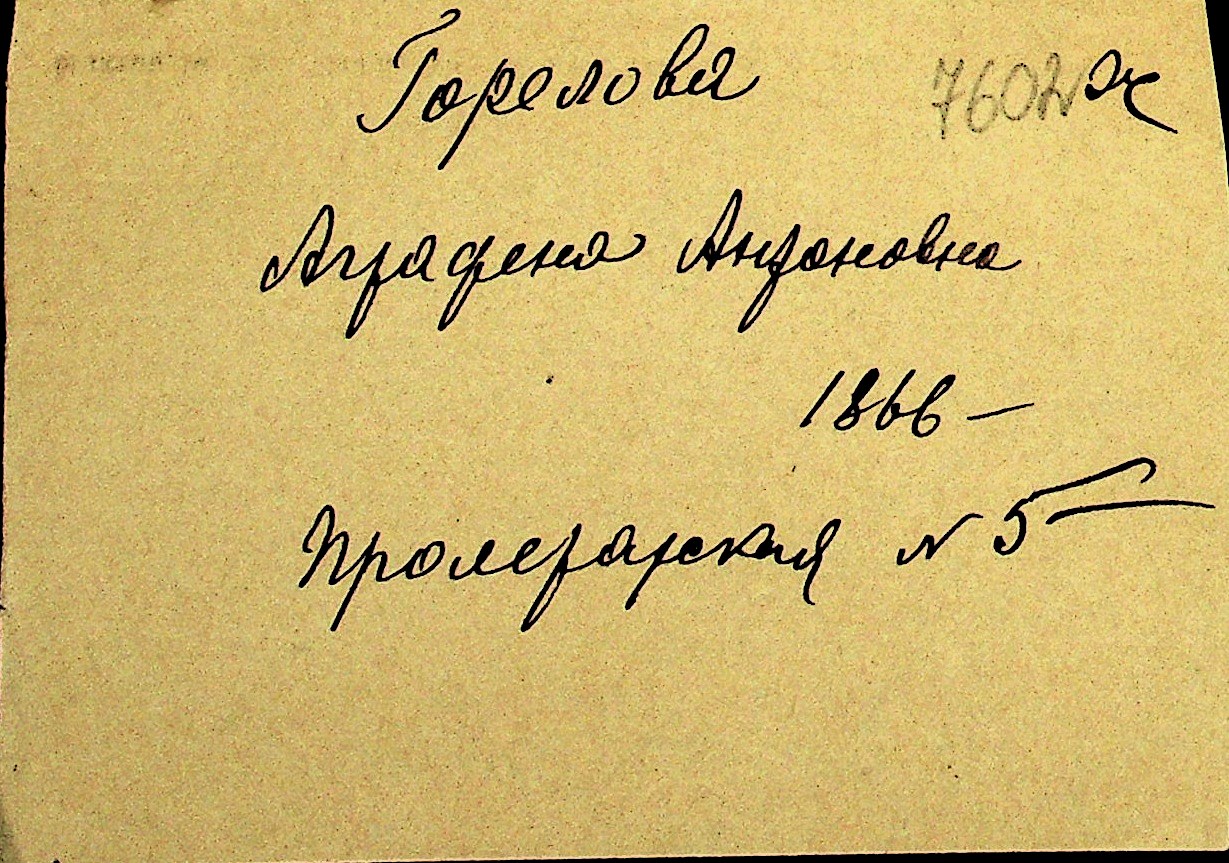 Горелова 7602 ж
Аграфена Антоновна
1866 –
Пролетарская N 5